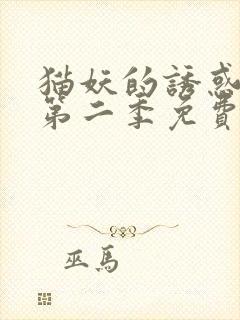 猫妖的誘惑
第二季免費
巫馬